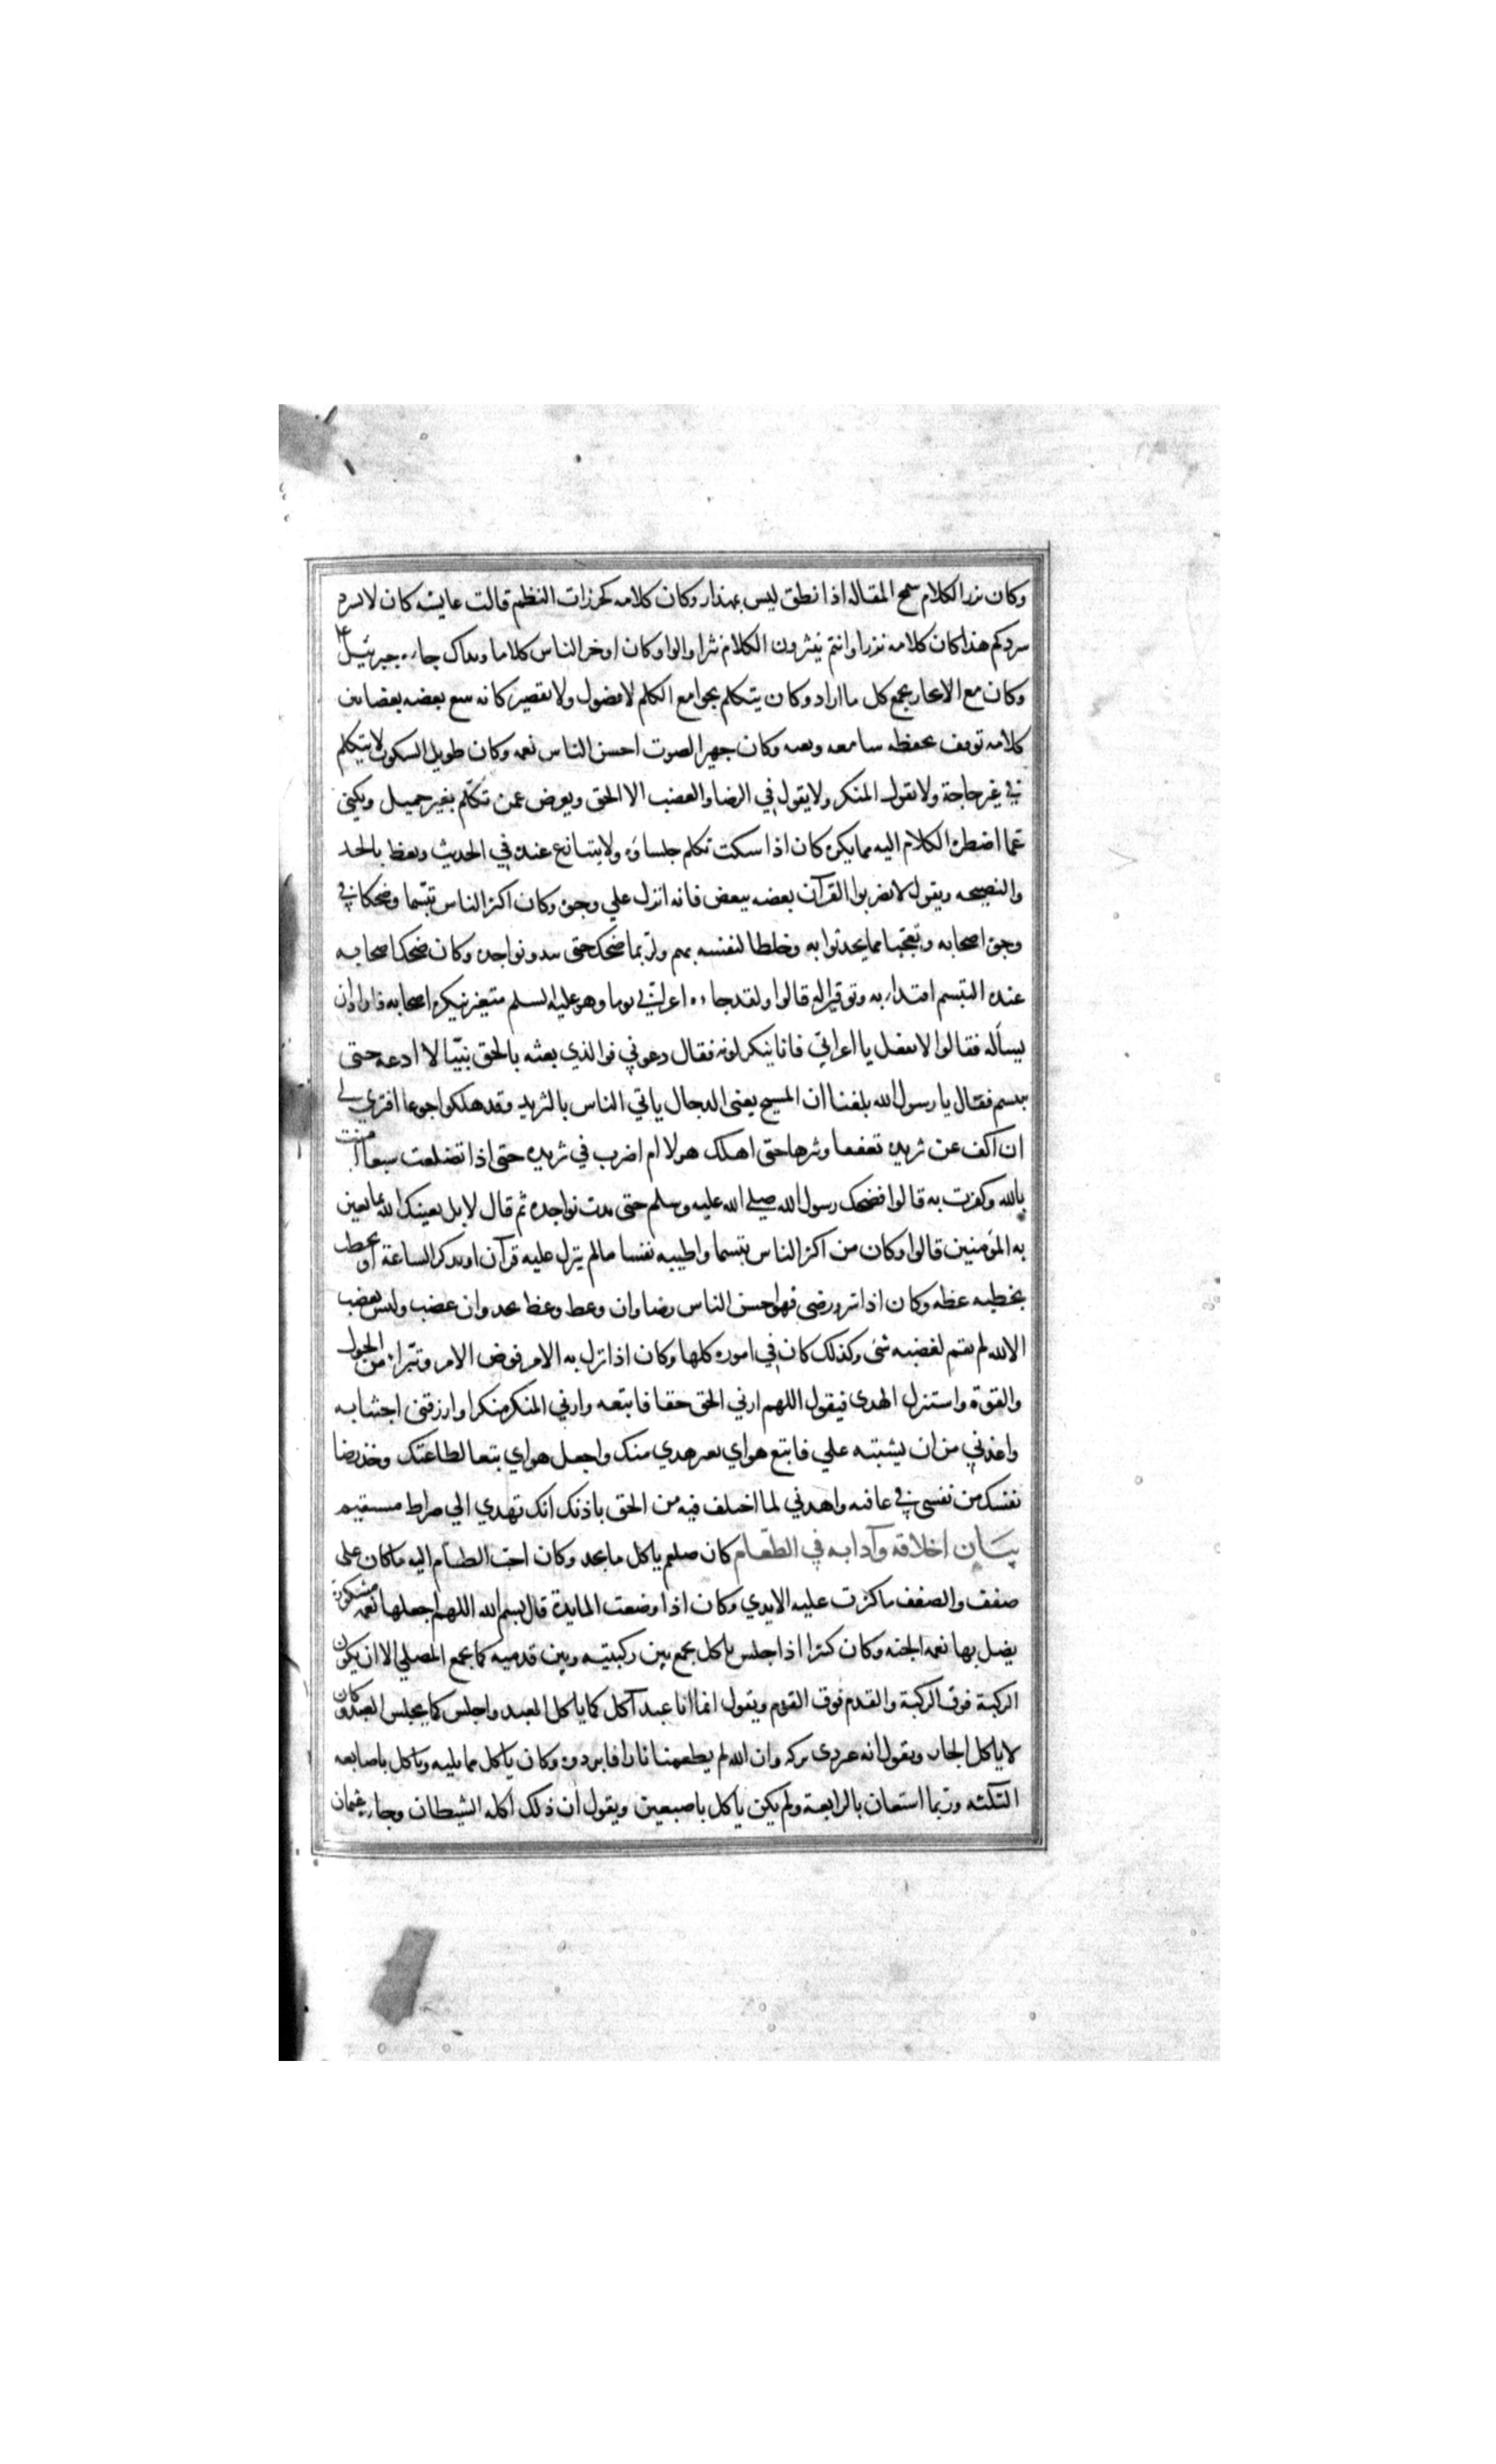 وكان نزر الكلام سمح المقاله اذا نطق ليس بمهذار وكان كلامه كخرزات النظم قالت عايشه كان لا يسرد
سردكم هذا كان كلامه نزرا وانتم تنثرون الكلام نثرا قالوا وكان اوخر الناس كلاما وبذاك جاءه جبرئيل ع
وكان مع الايجاز يجمع كل ما اراد وكان يتكلم بجوامع الكلم لا فضول ولا تقصير كانه يتبع بعضه بعضا بين
كلامه توقف يحفظه سامعه ويعيه وكان جهير الصوت احسن الناس نغمه وكان طويل السكوت لا يتكلم
في غير حاجة ولا يقول المنكر ولا يقول في الرضا والغضب الا الحق ويعرض عمن تكلم بغير جميل ويكني
عما اضطره الكلام اليه مما يكره كان اذا سكت تكلم جلساؤه ولا يتنازع عنده في الحديث ويعظ بالجد
والنصيحه ويقول لا تضربوا القرآن بعضه ببعض فانه انزل علي وجوه وكان اكثر الناس تبسما وضحكا في
وجوه اصحابه وتعجبا مما يحدثوا به وخلطا لنفسه بهم ولربما ضحك حتى تبدو نواجده وكان ضحك اصحابه
عنده التبسم اقتداء به وتوقيرا له قالوا ولقد جاءه اعرابي يوما وهو عليه السلم متغير ينكره اصحابه فاراد ان
يسأله فقالوا لا تفعل يا اعرابي فانا ننكر لونه فقال دعوني فوالذي بعثه بالحق نبيا لا ادعه حتى
يبتسم فقال يا رسول الله بلغنا ان المسيح يعنى الدجال ياتي الناس بالثريد وقد هلكوا جوعا افتري لي
ان اكف عن ثريده تعففا وتنزها حتى اهلك هزلا ام اضرب في ثريده حتى اذا تضلعت شبعا آمنت
بالله وكفرت به قالوا فضحك رسول الله صلى الله عليه وسلم حتى بدت نواجده ثم قال لا بل يغنيك الله بما يغني
به المؤمنين قالوا وكان من اكثر الناس تبسما واطيبه نفسا مالم ينزل عليه قرآن او يذكر الساعة او يخطب
بخطبه عظه وكان اذا سر ورضى فهو احسن الناس رضا وان وعظ وعظ بجد وان غضب وليس يغضب
الا لله لم يقم لغضبه شئ وكذلك كان في اموره كلها وكان اذا نزل به الامر فوض الامر وتبرا من الحول
والقوة واستنزل الهدى فيقول اللهم ارني الحق حقا فاتبعه وارني المنكر منكرا وارزقنى اجتنابه
واعذني من ان يشتبه علي فاتبع هواي بغير هدي منك واجعل هواي تبعا لطاعتك وخذ رضا
نفسك من نفسى في عافيه واهدني لما اختلف فيه من الحق باذنك انك تهدي الي صراط مستقيم
بيان اخلاقه وآدابه في الطعام كان صلعم ياكل ما يجد وكان احب الطعام اليه ما كان على
ضفف والضفف ماكثرت عليه الايدي وكان اذا وضعت المايدة قال بسم الله اللهم اجعلها نعمه مشكورة
يصل بها نعمه الجنه وكان كثيرا اذا جلس ياكل يجمع بين ركبتيه وبين قدميه كما يجمع المصلي الا ان يكون
الركبة فوق الركبة والقدم فوق القدم ويقول انما انا عبد آكل كما ياكل العبد واجلس كما يجلس العبد وكان
لا ياكل الحار ويقول انه غير ذى بركه وان الله لم يطعمنا نارا فابردوه وكان ياكل مما يليه وياكل باصابعه
الثلثه وربما استعان بالرابعة ولم يكن ياكل باصبعين ويقول ان ذلك اكله الشيطان وجاء عثمان